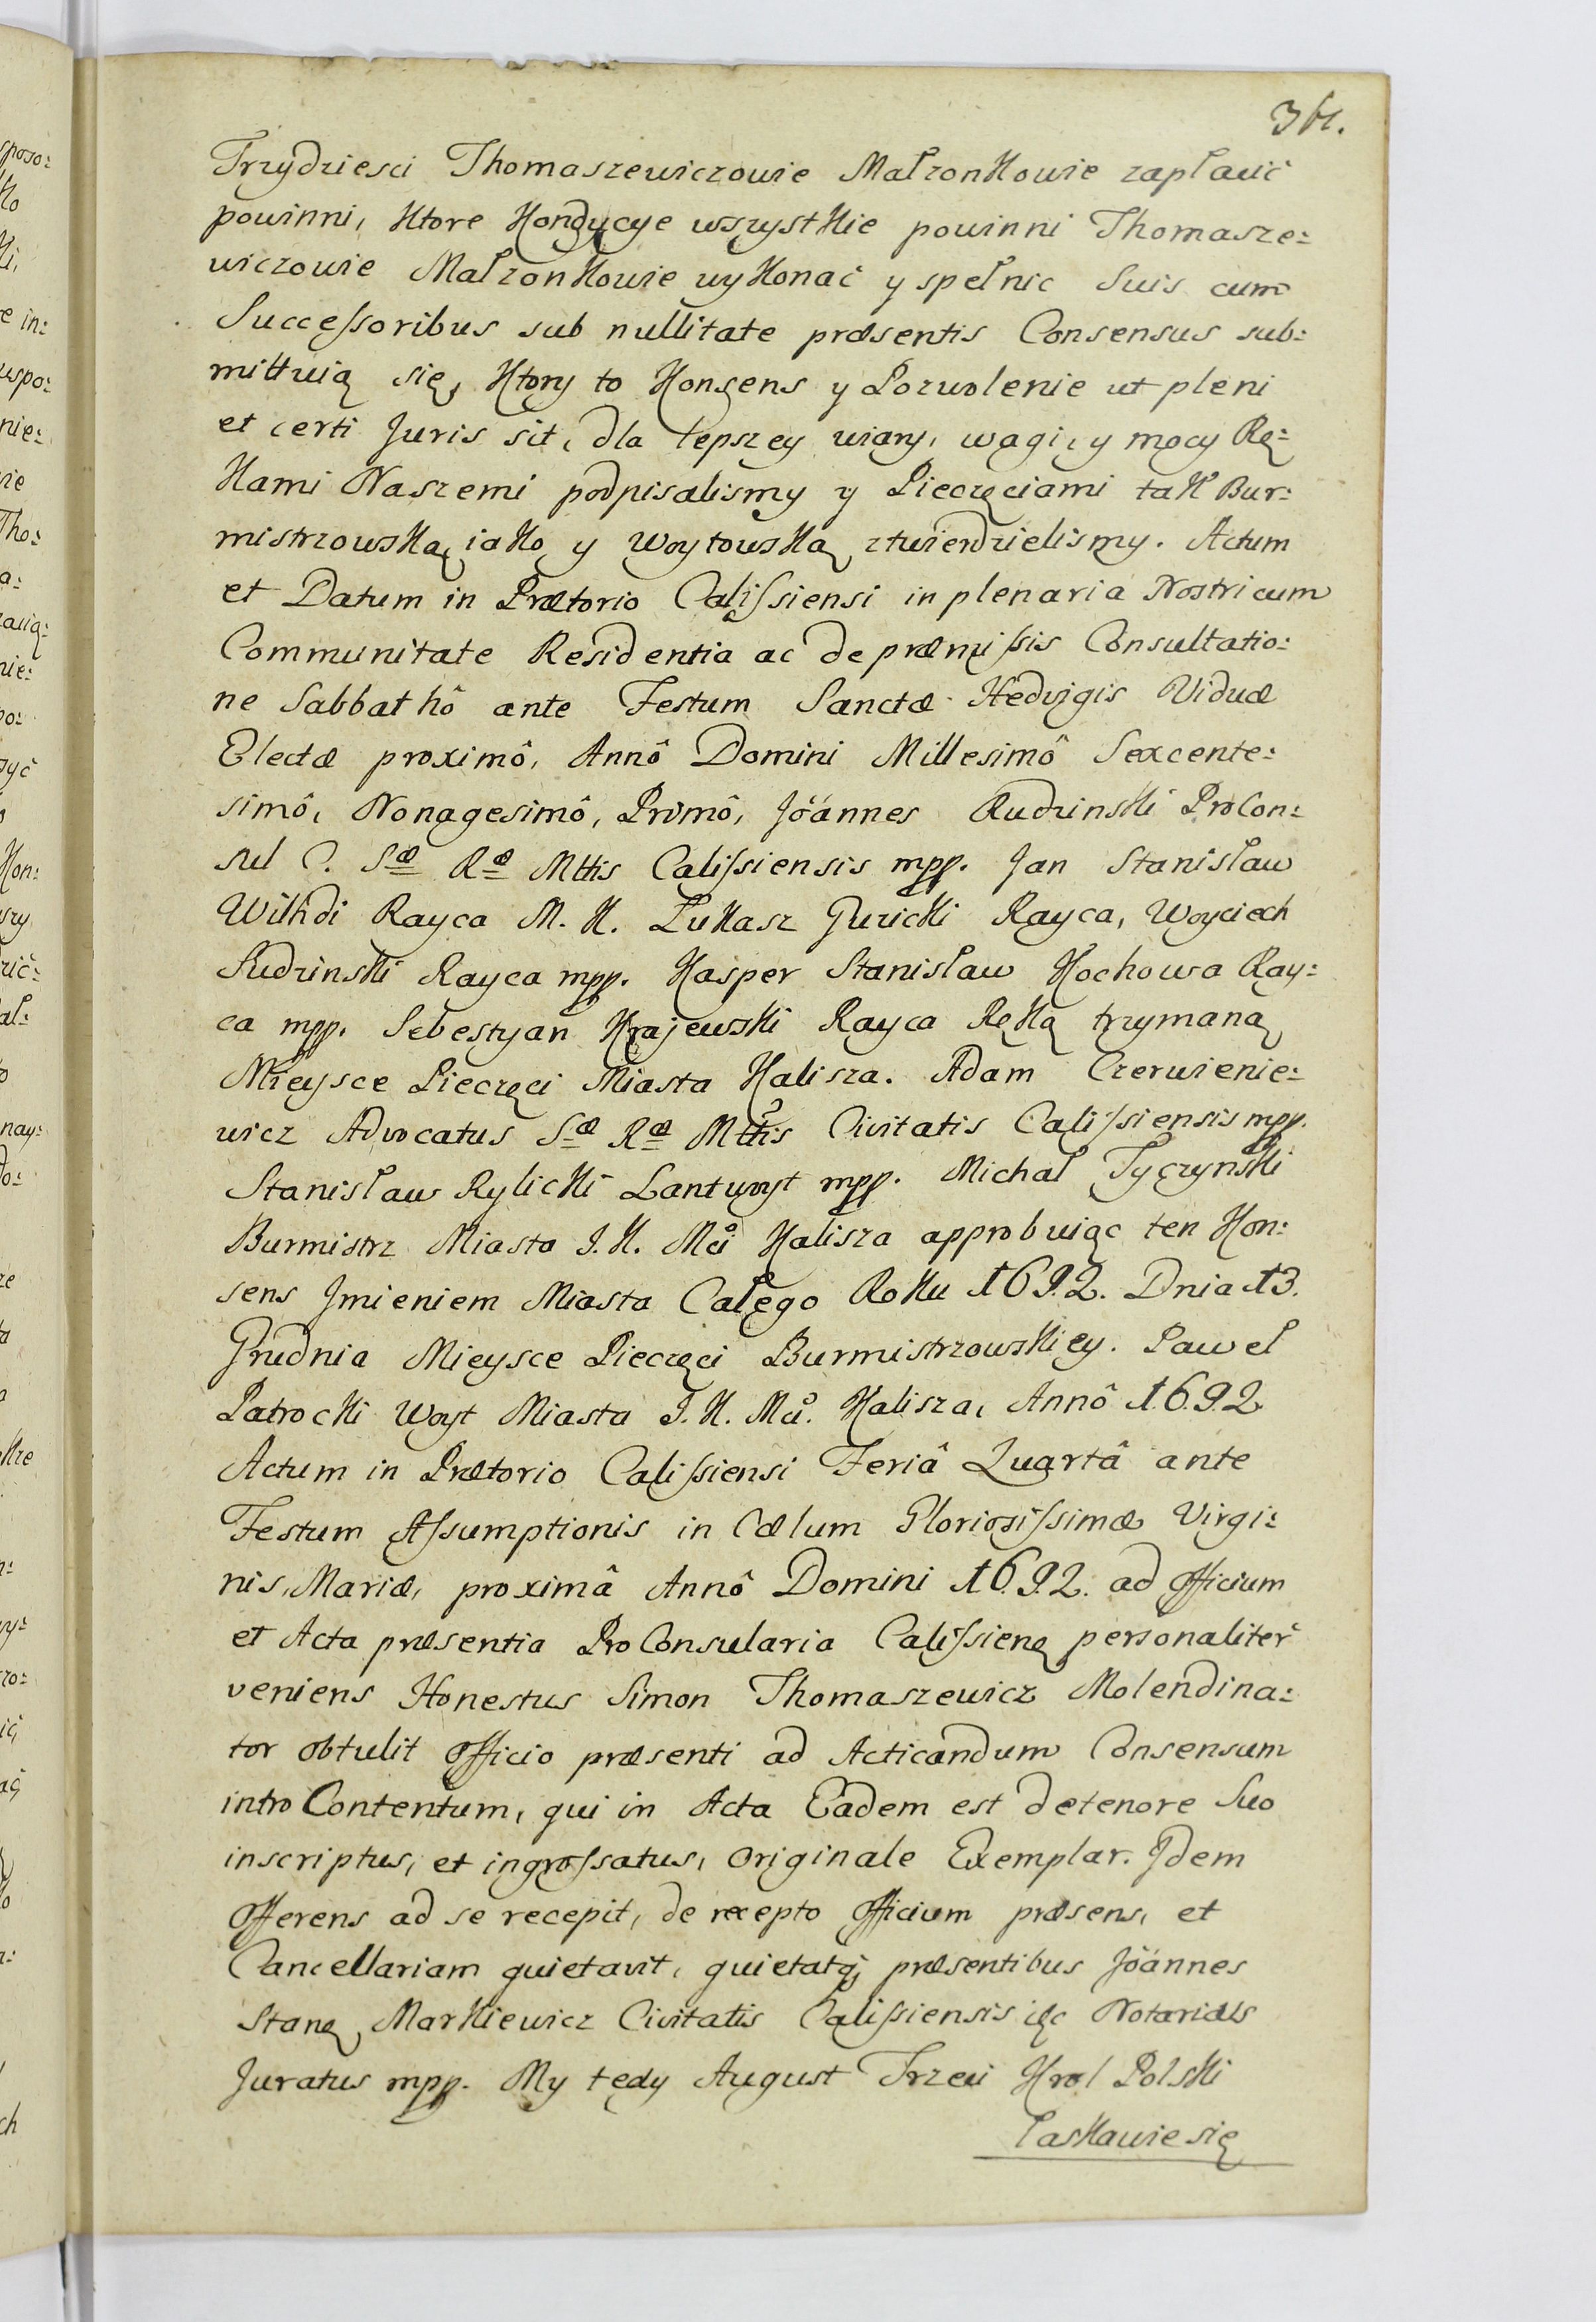 361.
Trzydziesci Thomaszewiczowie Małzonkowie zapłacić
powinni, ktore kondycye wszystkie powinni Thomasze:
wiczowie Małzonkowie wykonać y spełnic Suis cum
Successoribus sub nullitate præsentis Consensus sub:
mittuią się, ktory to Konsens y Pozwolenie ut pleni
et certi Juris sit, dla lepszey wiary, wagi, y mocy Rę:
kami Naszemi podpisalismy y Pieczęciami tak Bur:
mistrzowską, iako y Woytowską ztwierdzielismy. Actum
et Datum in Prætorio Calissiensi in plenaria Nostri cum
Communitate Residentia ac de præmissis Consultatio:
ne Sabbathô ante Festum Sanctæ Hedvigis Viduæ
Electæ proximô, Annô Domini Millesimô Sexcente:
simô, Nonagesimô, Primô, Jôánnes Rudzinski ProCon:
sul C. Sæ Ræ Mttis Calissiensis mpp. Jan Stanisław
Wilhdi Rayca M. K. Łukasz Guricki Rayca, Woyciech
Sudzinski Rayca mpp. Kasper Stanisław Kochowa Ray:
ca mpp. Sebestyan Krajewski Rayca Ręką trzymaną
Mieysce Pieczęci Miasta Kalisza. Adam Czerwienie:
wicz Advocatus Sæ Ræ Mttis Civitatis Calissiensis mpp.
Stanisław Rylicki Lantwoyt mpp. Michał Tyczynski
Burmistrz Miasta J. K. Mci Kalisza approbuiąc ten Kon:
sens Jmieniem Miasta Całego Roku 1692. Dnia 13.
Grudnia Mieysce Pieczęci Burmistrzowskiey. Paweł
Patrocki Woyt Miasta J. K. Mci. Kalisza, Annô 1692
Actum in Prætorio Calissiensi Feriâ Quartâ ante
Festum Assumptionis in Cælum Gloriosissimæ Virgi:
nis, Mariæ, proximâ Annô Domini 1692. ad Officium
et Acta præsentia ProConsularia Calissieną personaliter
veniens Honestus Simon Thomaszewicz Molendina:
tor obtulit Officio præsenti ad Acticandum Consensum
intro Contentum, qui in Acta Eadem est de tenore Suo
inscriptus, et ingrossatus, Originale Exemplar. Jdem
Offerens ad se recepit, de recepto Officium præsens, et
Cancellariam quietavit, quietatq; præsentibus Jôánnes
Staną Markiewicz Civitatis Calissiensis Notarius
Juratus mpp. My tędy August Trzeci Krol Polski
łaskawie się